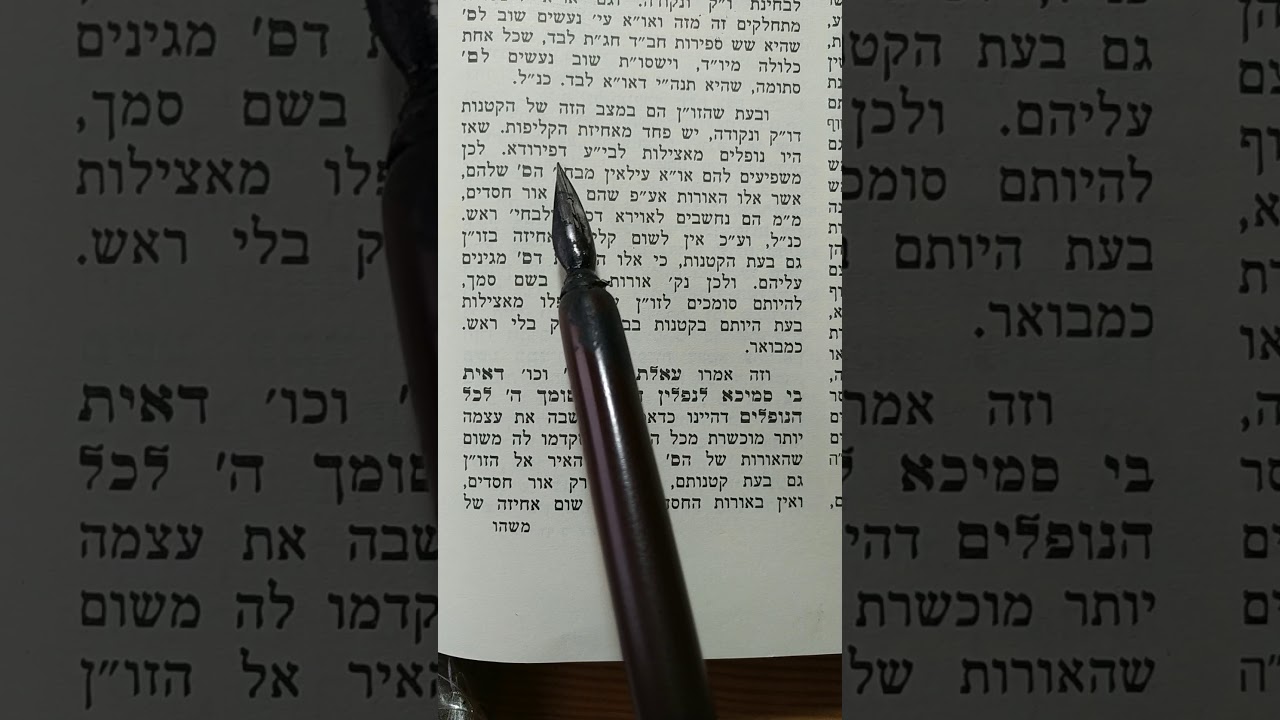 לבחינת ו״ק ונקודה. וגם
מתחלקים זה מזה ואו״א עי׳ נעשים שוב לס׳
שהיא שש ספירות חב״ד חג״ת לבד, שכל אחת
כלולה מיו״ד, וישסו״ת שוב נעשים לם׳
סתומה, שהיא תנה״י דאו״א לבד. כנ״ל.
ובעת שהזו״ן הם במצב הזה של הקטנות
דו״ק ונקודה, יש פחד מאחיזת הקליפות. שאז
היו נופלים מאצילות לבי״ע דפירודא. לכן
משפיעים להם או״א עילאין הס׳ שלהם,
אשר אלו האורות אע״פ שהם אור חסדים,
מ״מ הם נחשבים לאוירא ולבחי׳ ראש.
כנ״ל, וע״כ אין לשום אחיזה בזו״ן
גם בעת הקטנות, כי אלו דס׳ מגינים
עליהם. ולכן נק׳ אורות בשם סמך,
להיותם סומכים לזו״ן מאצילות
בעת היותם בקטנות בלי ראש.
כמבואר.
וזה אמרו עאלת וכו׳ דאית
בי סמיכא לנפלין סומך ה׳ לכל
הנופלים דהיינו את עצמה
יותר מוכשרת מכל לה משום
שהאורות של הס׳ האיר אל הזו״ן
גם בעת קטנותם, רק אור חסדים,
ואין באורות שום אחיזה של
משהו